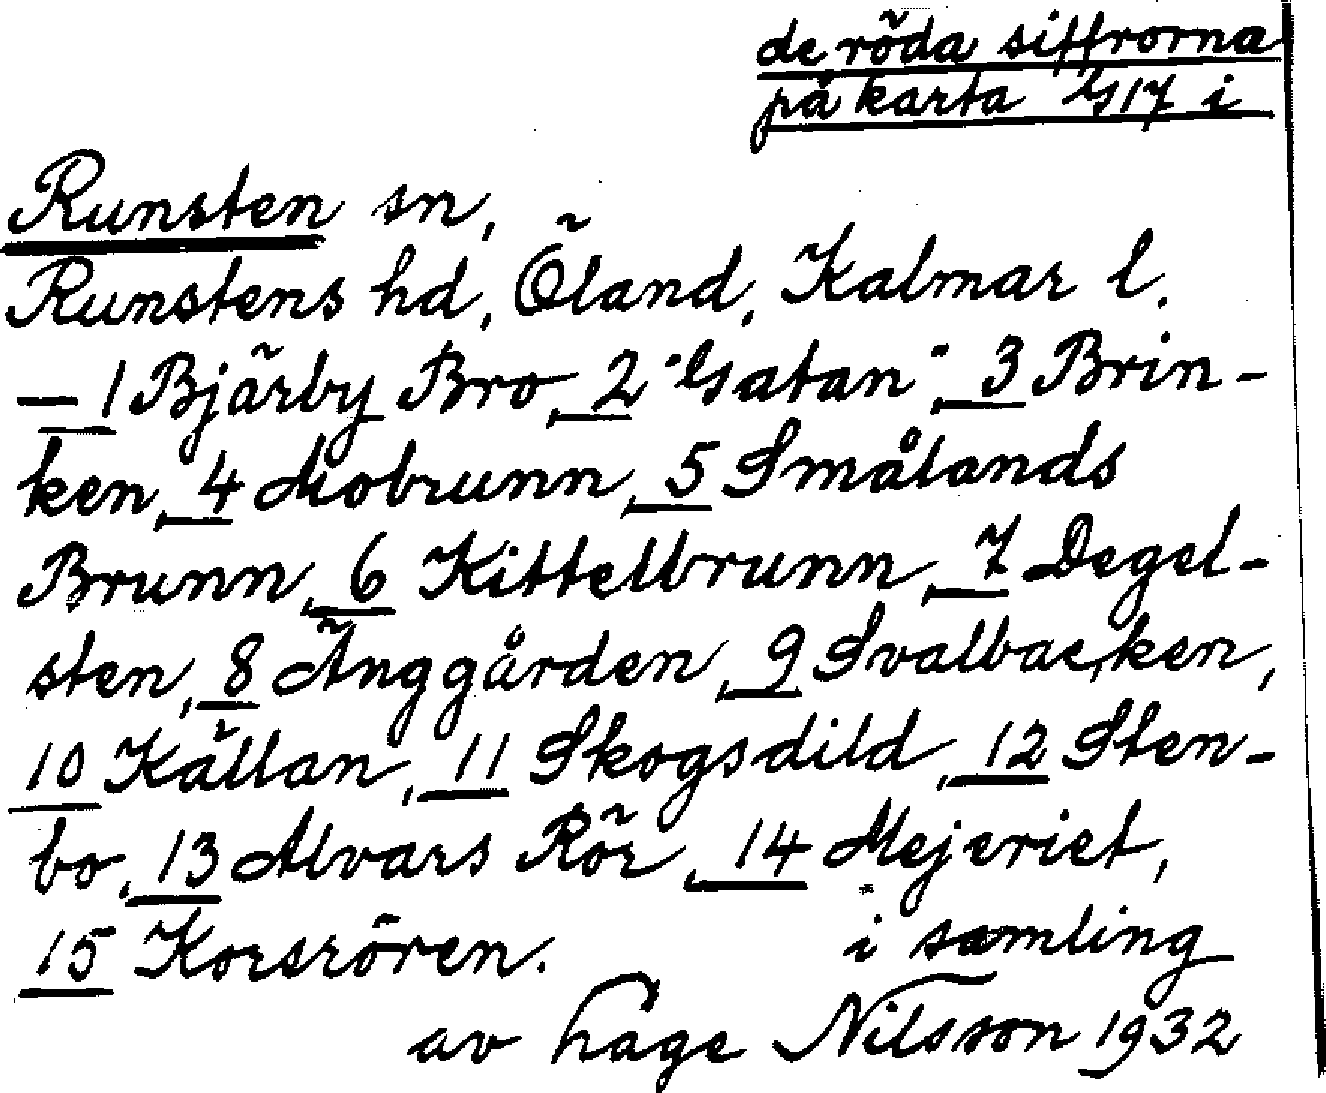 de röda siffrorna
på karta G17 i
Runsten sn,
Runstens hd, Öland, Kalmar l.
— 1 Bjärby Bro, 2 "Gatan", 3 Brin-
ken, 4 Mobrunn, 5 Smålands
Brunn, 6 Kittelbrunn, 7 Degel-
sten, 8 Änggården, 9 Svalbacken,
10 Källan, 11 Skogsdild, 12 Sten-
bo, 13 Alvars Rör, 14 Mejeriet,
15 Korsrören. i samling
av hage Nilsson 1932